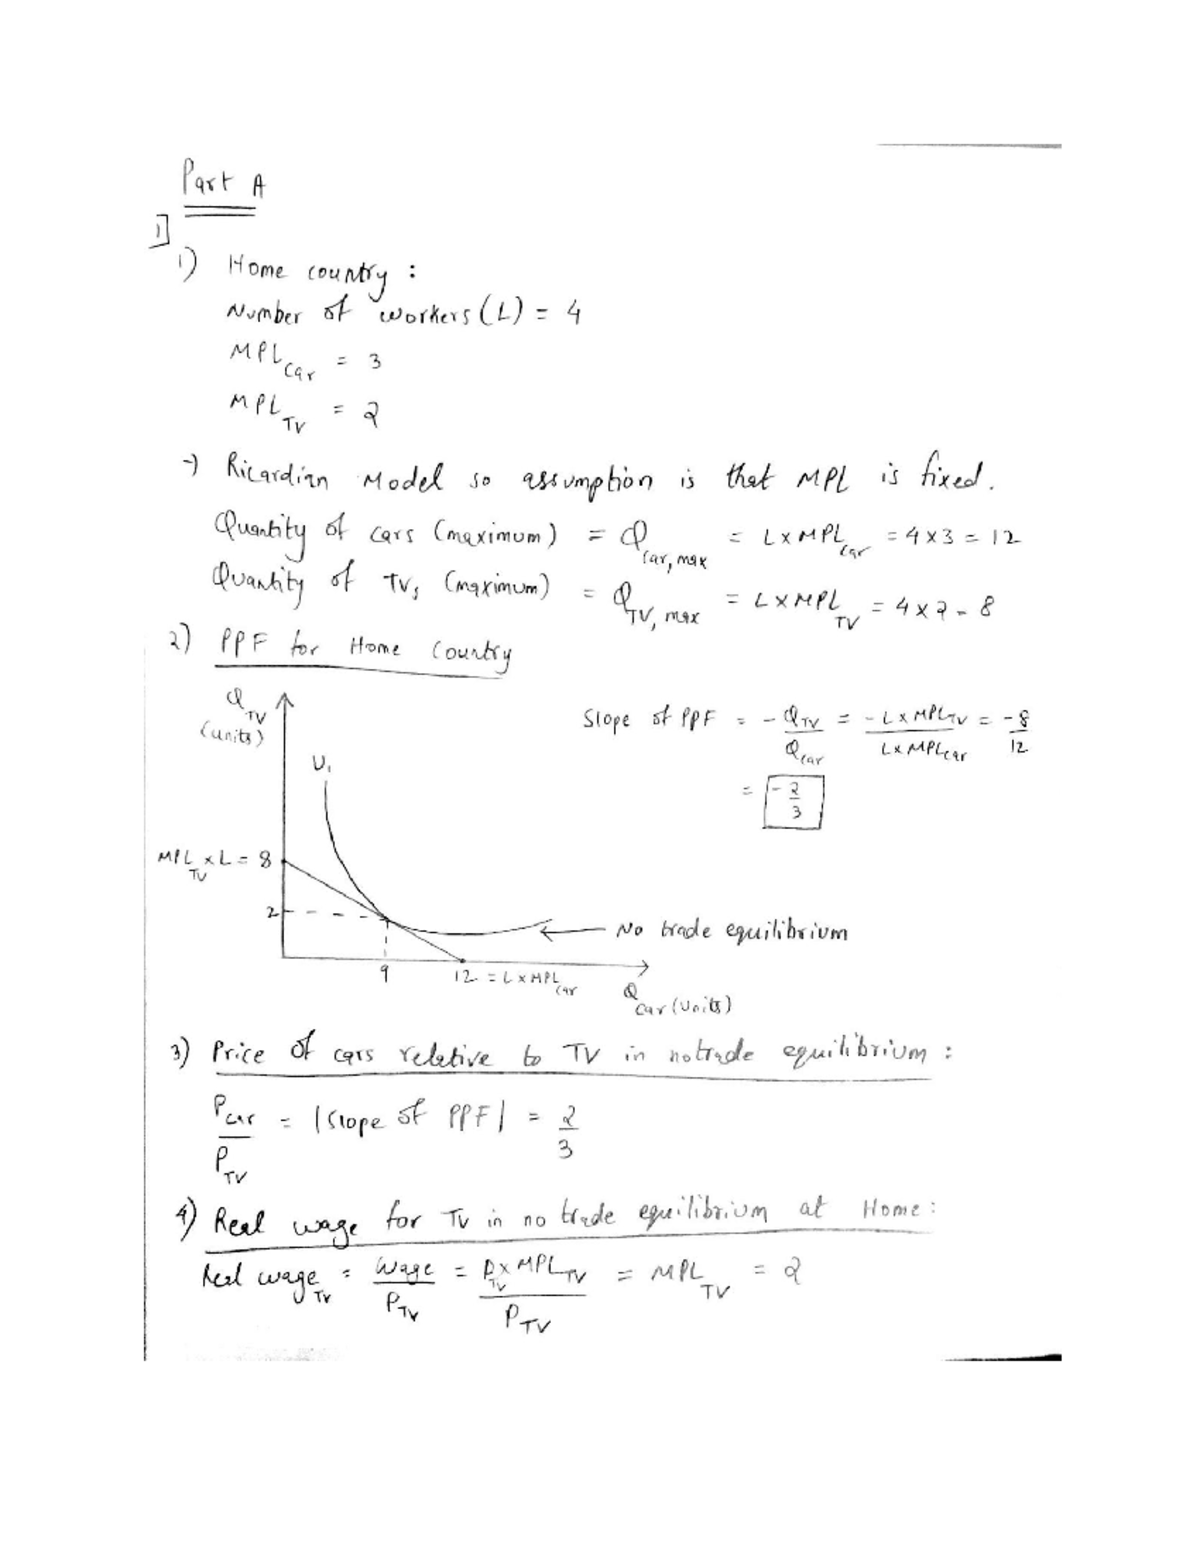 Part A
1]
1) Home country :
Number of workers (L) = 4
MPL_Car = 3
MPL_TV = 2
→) Ricardian Model so assumption is that MPL is fixed.
Quantity of cars (maximum) = Q_car, max = L x MPL_car = 4 x 3 = 12
Quantity of TVs (maximum) = Q_TV, max = L x MPL_TV = 4 x 2 = 8
2) PPF for Home Country
Q_TV (units)
Slope of PPF = - Q_TV / Q_car = - L x MPL_TV / L x MPL_car = - 8 / 12
= - 2 / 3
U₁
MPL_TV x L = 8
2
No trade equilibrium
9
12 = L x MPL_car
Q_car (Units)
3) Price of cars relative to TV in no trade equilibrium :
P_car / P_TV = |slope of PPF| = 2 / 3
4) Real wage for TV in no trade equilibrium at Home :
Real wage_TV = Wage / P_TV = P_TV x MPL_TV / P_TV = MPL_TV = 2